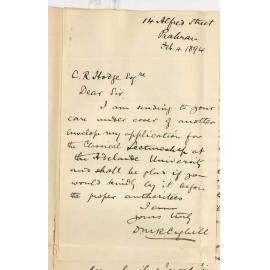 14 Alfred Street
Prahran
Feb 4 1894
C. R. Hodge Esqre
Dear Sir
I am sending to your
care under cover of another
envelope my application for
the Classical Lectureship at
the Adelaide University
and shall be glad if you
would kindly lay it before
the proper authorities
I am
yours truly